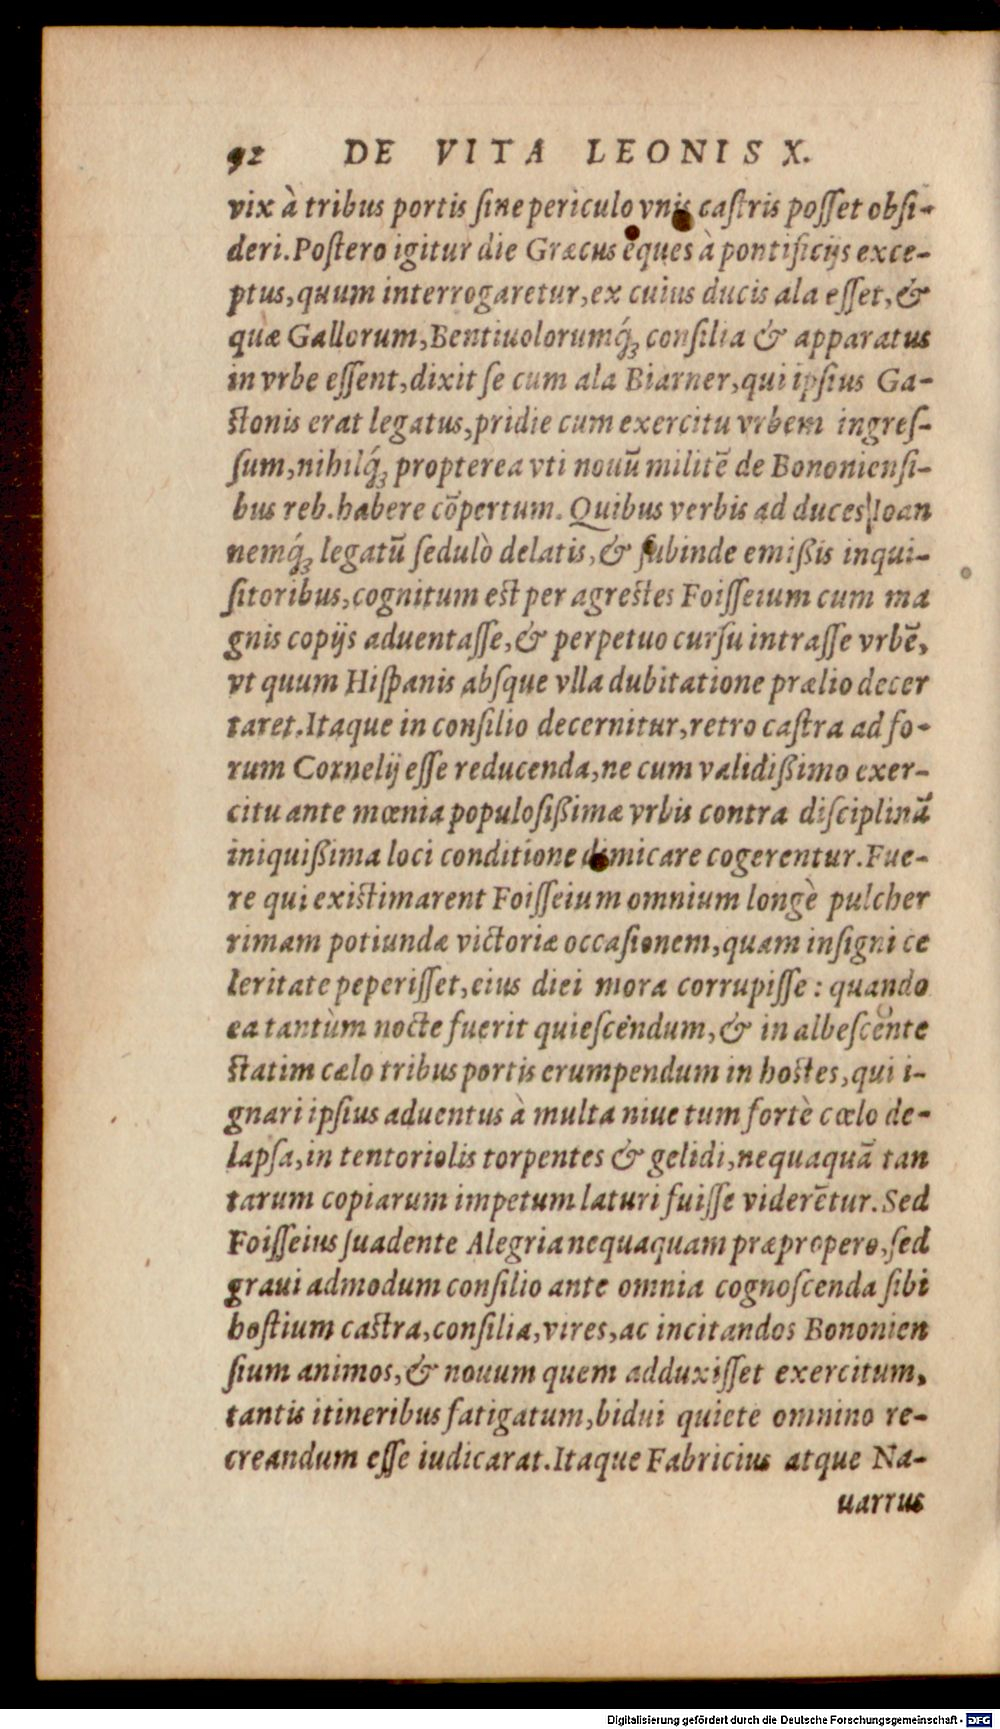 92 DE VITA LEONIS X.
vix à tribus portis ſine periculo vnis caſtris poſſet obſi-
deri. Poſtero igitur die Græcus eques à pontificijs exce-
ptus, quum interrogaretur, ex cuius ducis ala eſſet, &
quæ Gallorum, Bentiuolorumq́; conſilia & apparatus
in vrbe eſſent, dixit ſe cum ala Biarner, qui ipſius Ga-
ſtonis erat legatus, pridie cum exercitu vrbem ingreſ-
ſum, nihilq́; propterea vti nouũ militẽ de Bononienſi-
bus reb. habere cõpertum. Quibus verbis ad duces Ioan
nemq́; legatũ ſedulò delatis, & ſubinde emißis inqui-
ſitoribus, cognitum eſt per agreſtes Foiſſeium cum ma
gnis copijs aduentaſſe, & perpetuo curſu intraſſe vrbẽ,
vt quum Hiſpanis abſque vlla dubitatione prælio decer
taret. Itaque in conſilio decernitur, retro caſtra ad fo-
rum Cornelij eſſe reducenda, ne cum validißimo exer-
citu ante mœnia populoſißimæ vrbis contra diſciplinã
iniquißima loci conditione dimicare cogerentur. Fue-
re qui exiſtimarent Foiſſeium omnium longè pulcher
rimam potiundæ victoriæ occaſionem, quam inſigni ce
leritate peperiſſet, eius diei mora corrupiſſe: quando
ea tantùm nocte fuerit quieſcendum, & in albeſcente
ſtatim cælo tribus portis erumpendum in hoſtes, qui i-
gnari ipſius aduentus à multa niue tum fortè cœlo de-
lapſa, in tentoriolis torpentes & gelidi, nequaquã tan
tarum copiarum impetum laturi fuiſſe viderẽtur. Sed
Foiſſeius ſuadente Alegria nequaquam præpropero, ſed
graui admodum conſilio ante omnia cognoſcenda ſibi
hoſtium caſtra, conſilia, vires, ac incitandos Bononien
ſium animos, & nouum quem adduxiſſet exercitum,
tantis itineribus fatigatum, bidui quiete omnino re-
creandum eſſe iudicarat. Itaque Fabricius atque Na-
uarrus
Digitalisierung gefördert durch die Deutsche Forschungsgemeinschaft - DFG